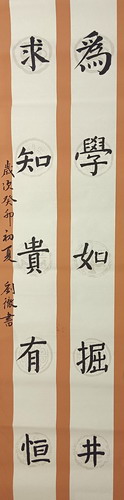 為學如掘井
求知貴有恒
歲次癸卯初夏 劉徽書